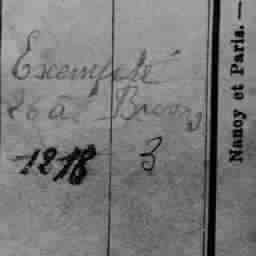 Exempté
26 a
1218 3
Nancy et Paris. —